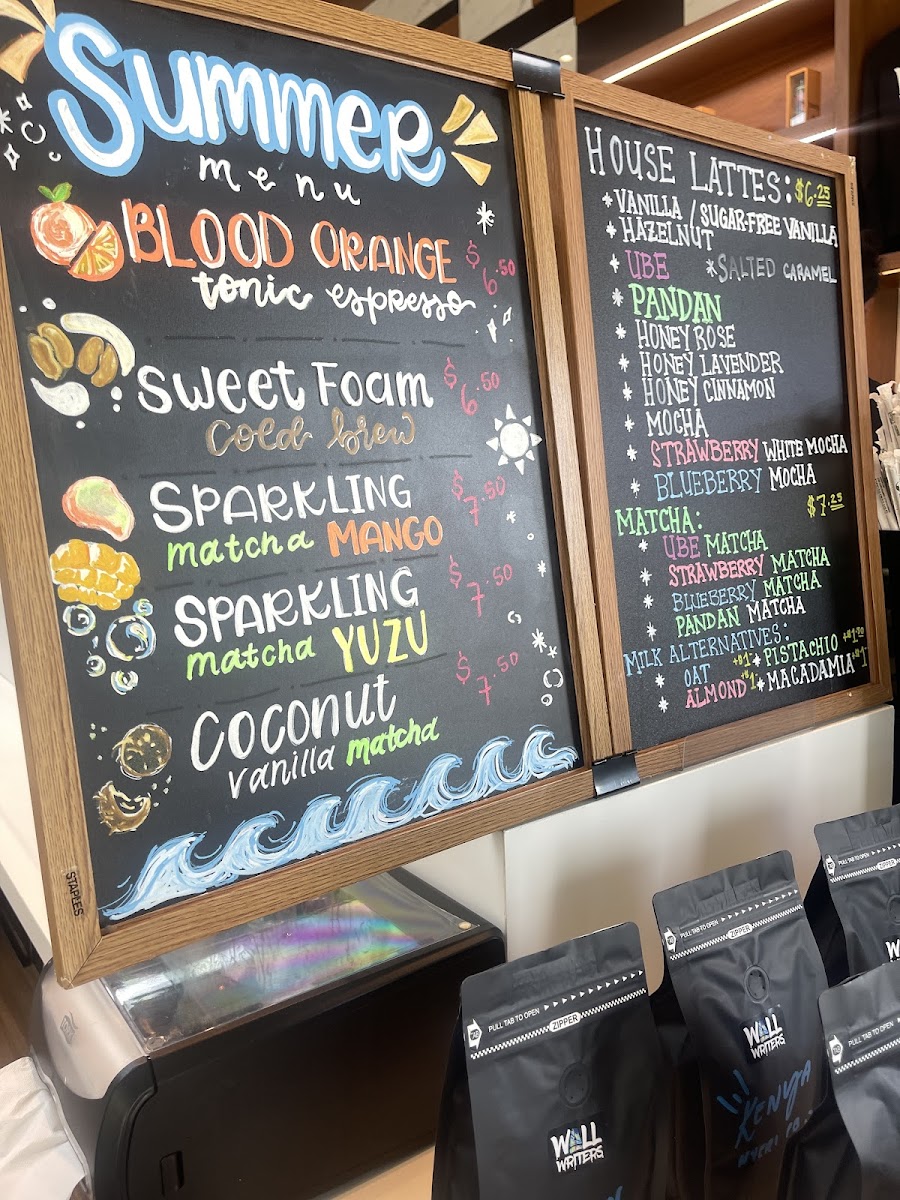 Summer
menu
BLOOD ORANGE $6.50
tonic espresso
sweet Foam $6.50
cold brew
SPARKLING $7.50
matcha MANGO
SPARKLING $7.50
matcha YUZU
Coconut $7.50
vanilla matcha
STAPLES
HOUSE LATTES: $6.25
*VANILLA / SUGAR-FREE VANILLA
*HAZELNUT
*UBE *SALTED CARAMEL
*PANDAN
*HONEY ROSE
*HONEY LAVENDER
*HONEY CINNAMON
*MOCHA
*STRAWBERRY WHITE MOCHA
*BLUEBERRY MOCHA
MATCHA: $7.25
*UBE MATCHA
*STRAWBERRY MATCHA
*BLUEBERRY MATCHA
*PANDAN MATCHA
MILK ALTERNATIVES:
*OAT +$1 *PISTACHIO +$1.50
*ALMOND +$1 *MACADAMIA +$1
PULL TAB TO OPEN
ZIPPER
WALL
WRITERS
PULL TAB TO OPEN
ZIPPER
WALL
WRITERS
KENYA
PULL TAB TO OPEN
ZIPPER
PULL TAB TO OPEN